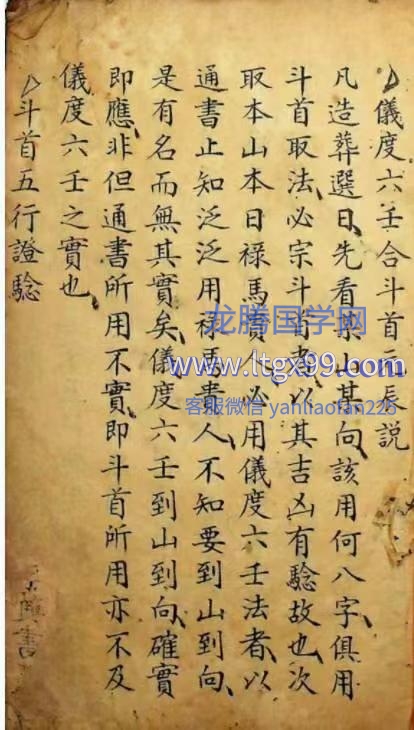 儀度六壬合斗首元辰説
凡造葬選日先看某山某向該用何八字俱用
斗首取法必宗斗首者以其吉凶有驗故也次
取本山本日祿馬貴人必用儀度六壬法者以
通書止知泛泛用祿馬貴人不知要到山到向
是有名而無其實矣儀度六壬到山到向確實
即應非但通書所用不實即斗首所用亦不及
儀度六壬之實也
斗首五行證驗
龙腾国学网
www.ltgx99.com
客服微信 yanliaofan225